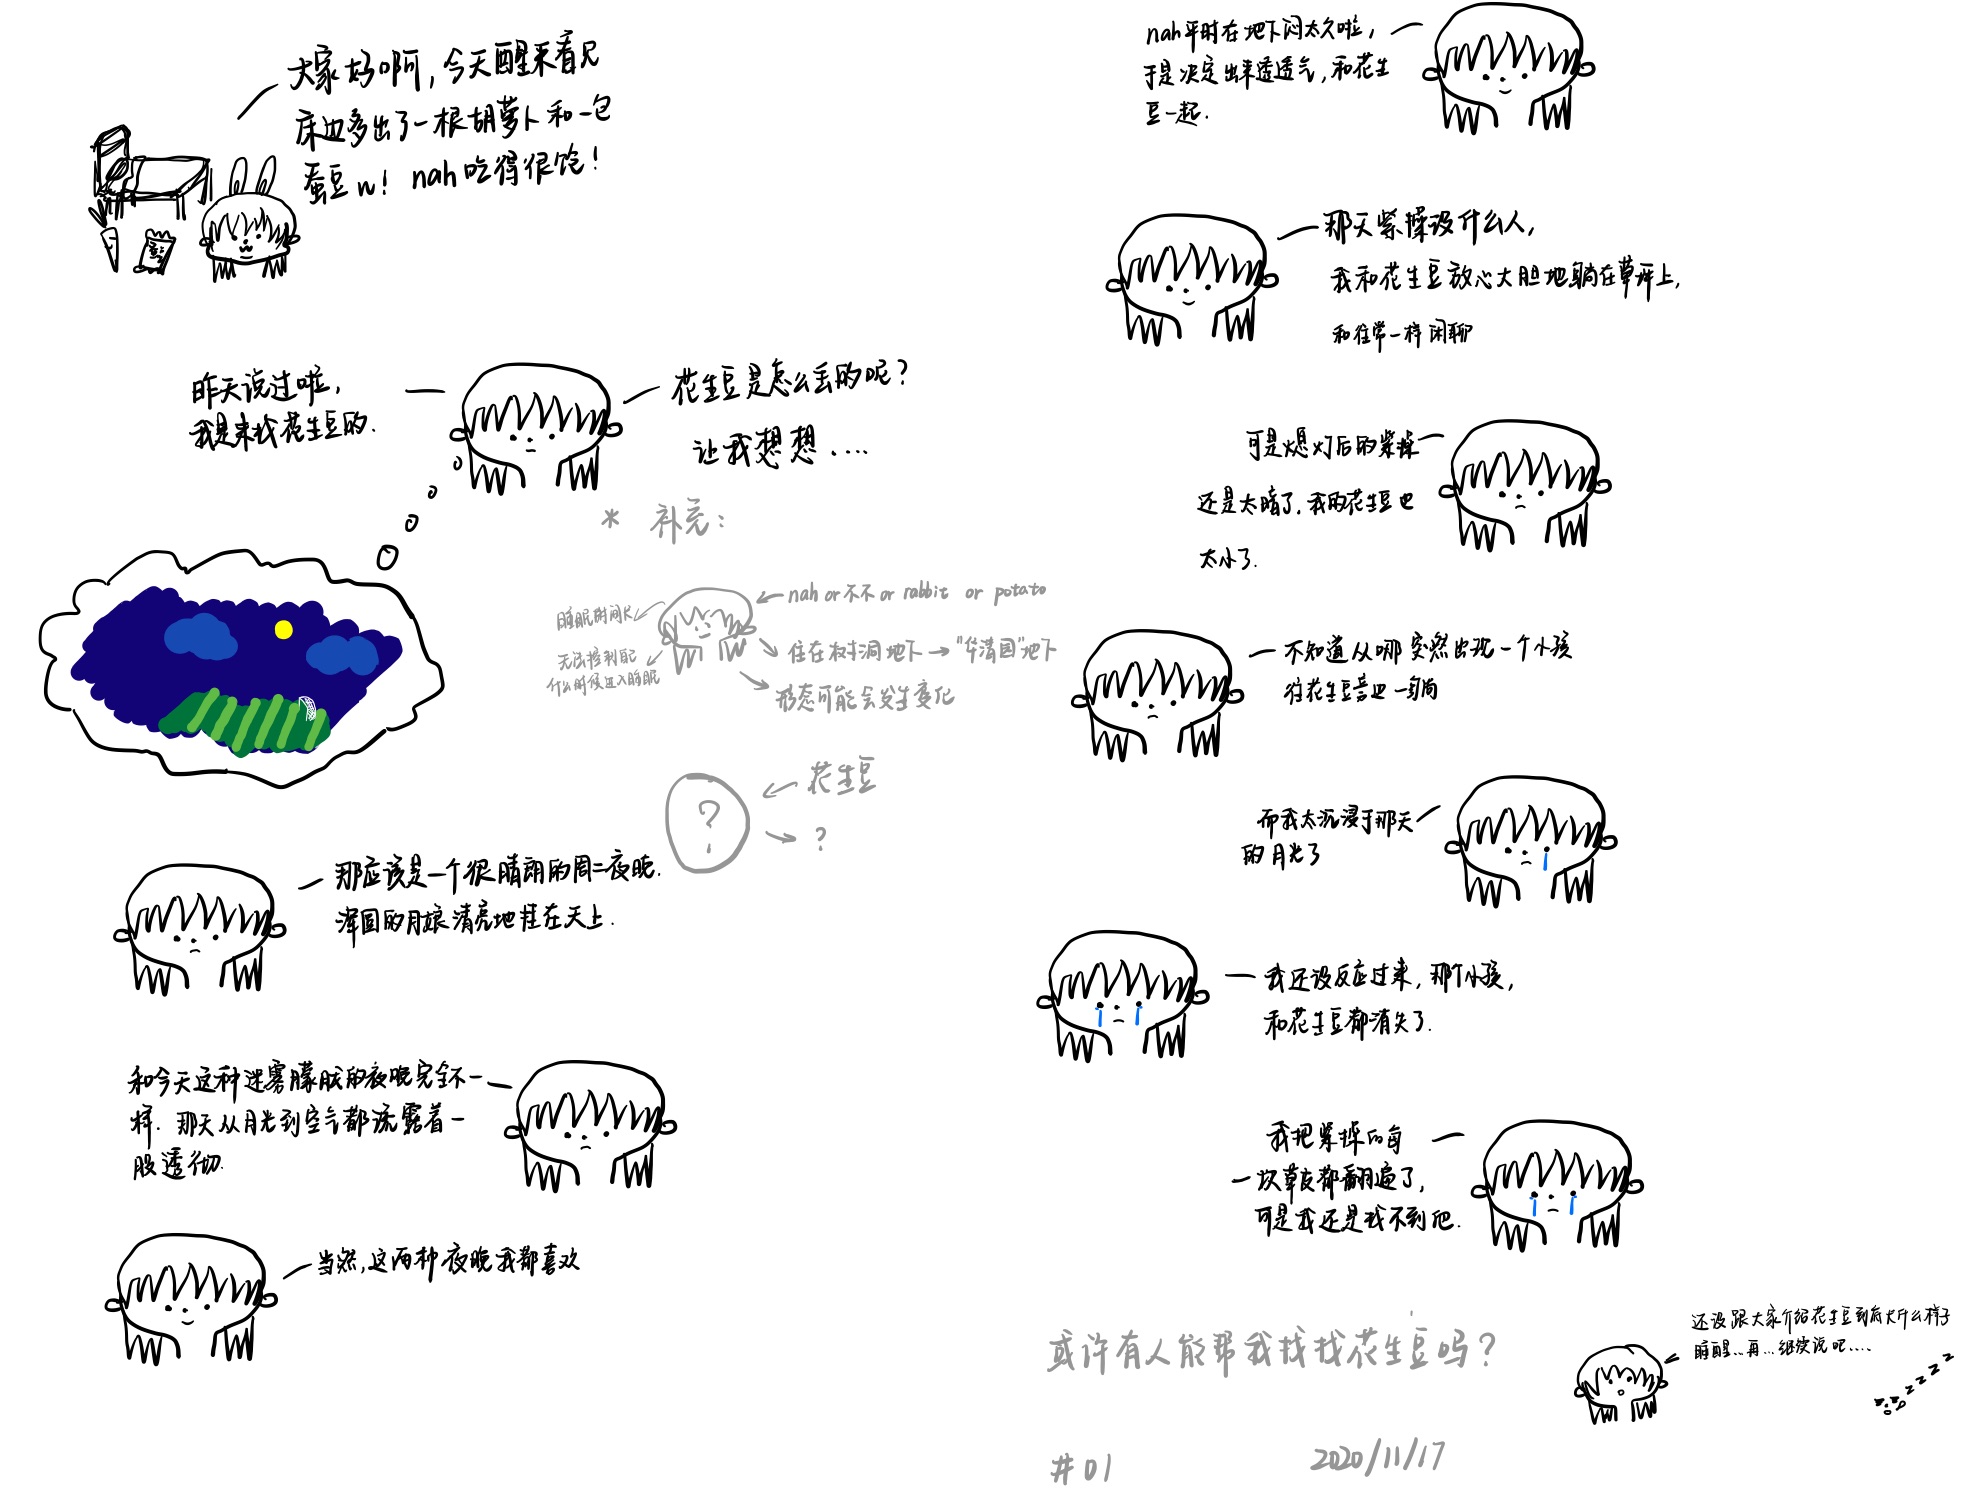 大家好啊，今天醒来看见
床边多出了一根胡萝卜和一包
蚕豆w！nah吃得很饱！
昨天说过啦，
我是来找花生豆的.
花生豆是怎么丢的呢？
让我想想....
* 补充：
nah or 不不 or rabbit or potato
睡眠时间长
住在树洞地下→“华清园”地下
无法控制自己
什么时候进入睡眠
形态可能会发生变化
花生豆
?
?
那应该是一个很晴朗的周二夜晚.
浑圆的月娘清亮地挂在天上.
和今天这种迷雾朦胧的夜晚完全不一
样. 那天从月光到空气都流露着一
股透彻.
当然，这两种夜晚我都喜欢
nah平时在地下闷太久啦，
于是决定出来透透气，和花生
豆一起.
那天紫操没什么人，
我和花生豆放心大胆地躺在草坪上，
和往常一样闲聊
可是熄灯后的紫操
还是太暗了. 我的花生豆也
太小了.
不知道从哪突然出现一个小孩
往花生豆旁边一躺
而我太沉浸于那天
的月光了
我还没反应过来，那个小孩，
和花生豆都消失了.
我把紫操的每
一块草皮都翻遍了，
可是我还是找不到他.
或许有人能帮我找找花生豆吗？
还没跟大家介绍花生豆到底长什么样子
睡醒...再...继续说吧....
zzzzz
#01
2020/11/17